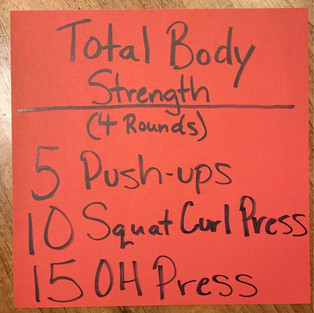 Total Body
Strength
(4 Rounds)
5 Push-ups
10 Squat Curl Press
15 OH Press